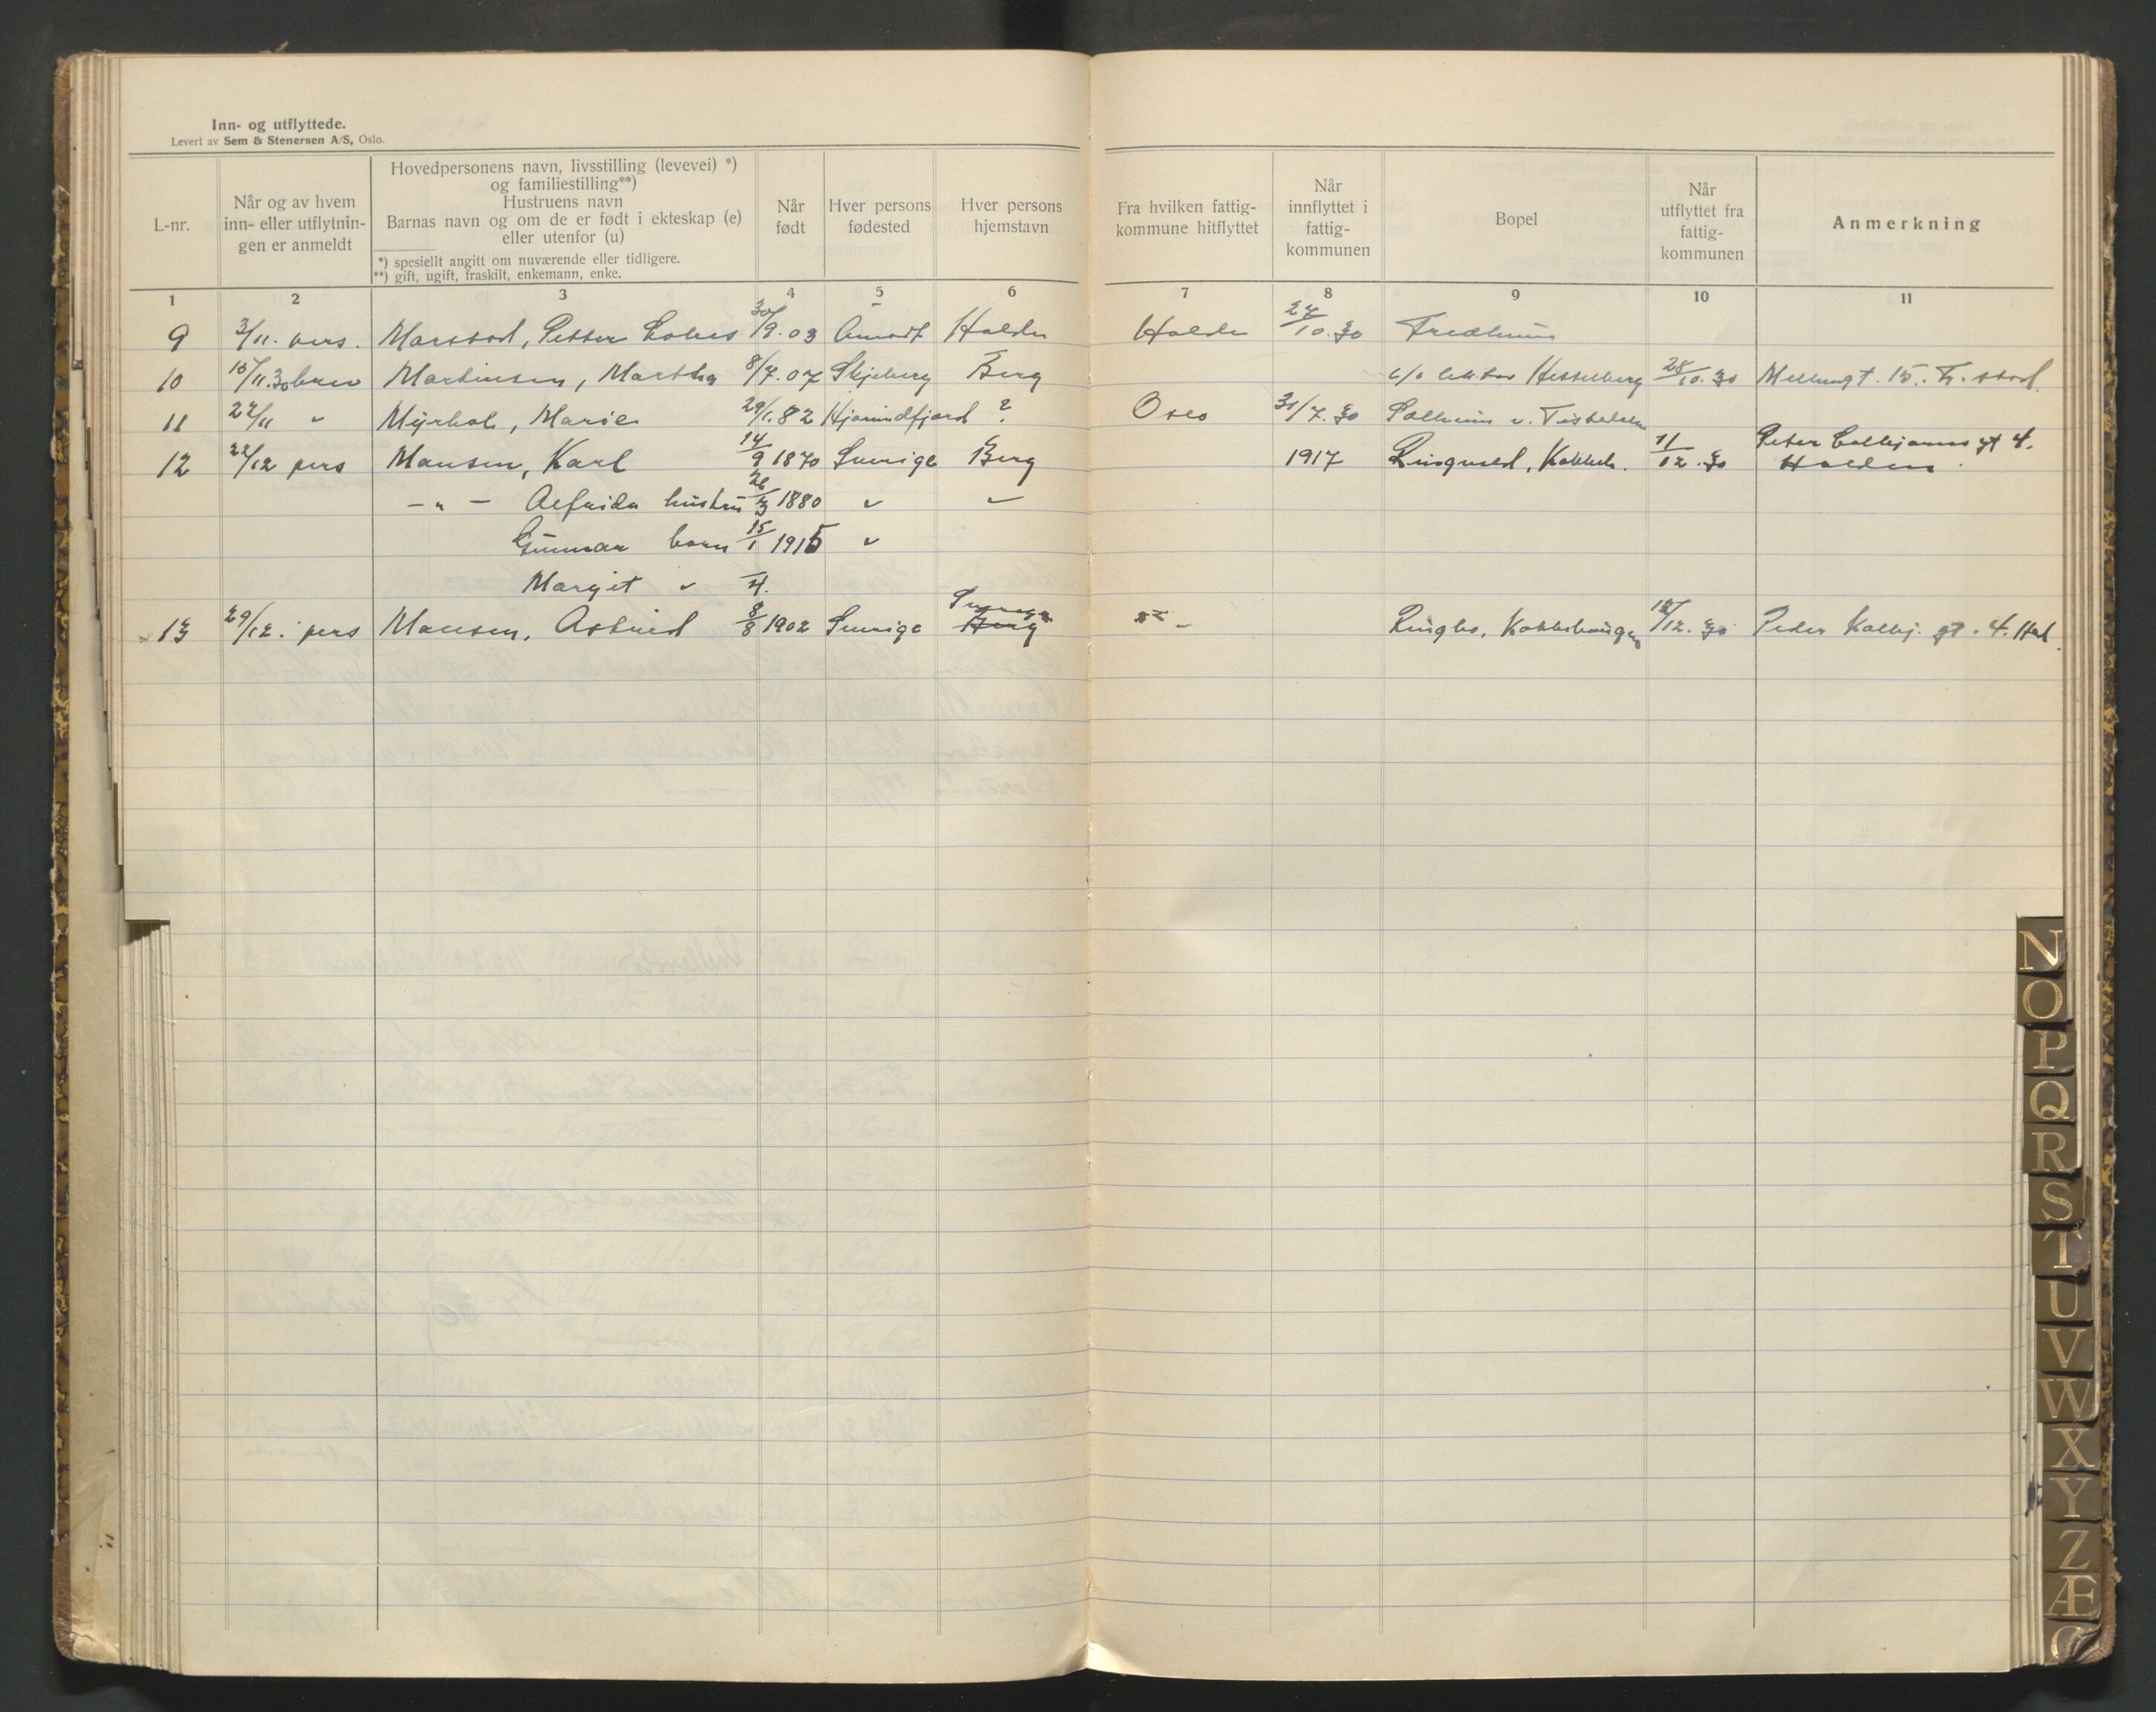 Inn- og utflyttede.
Levert av Sem & Stenersen A/S, Oslo.
L-nr.
Når og av hvem
inn- eller utflytnin-
gen er anmeldt
Hovedpersonens navn, livsstilling (levevei) *)
og familiestilling**)
Hustruens navn
Barnas navn og om de er født i ekteskap (e)
eller utenfor (u)
*) spesiellt angitt om nuværende eller tidligere.
**) gift, ugift, fraskilt, enkemann, enke.
Når
født
Hver persons
fødested
Hver persons
hjemstavn
Fra hvilken fattig-
kommune hitflyttet
Når
innflyttet i
fattig-
kommunen
Bopel
Når
utflyttet fra
fattig-
kommunen
Anmerkning
1 2 3 4 5 6 7 8 9 10 11
9 3/11. pers. Petter 30/9.03 Halden Halden 27/10.30 Fredheim
10 30 brev Martinsen, Martha 8/7.07 Skjeberg Berg c/o lektor Hesselberg 28/10.30 15. Fr.stad
11 22/11 " Myrhol, Marie 29/1.82 Hjørundfjord ? Oslo 31/7.30 Solheim v.
12 22/12 pers Mansen, Karl 14/9 1870 Sverige Berg 1917 11/12.30 Peter Colbjørns gt 4.
Halden.
- " - Alfrida hustru 26/3 1880 " "
Gunnar barn 15/1 1915 "
Margit " 4.
13 29/12. pers Mansen, Astrid 8/8 1902 Sverige Sverige Berg Ringbo, /12.30 Peder Kolbj. gt. 4. Hal.
N
O
P
Q
R
S
T
U
V
W
X
Y
Z
Æ